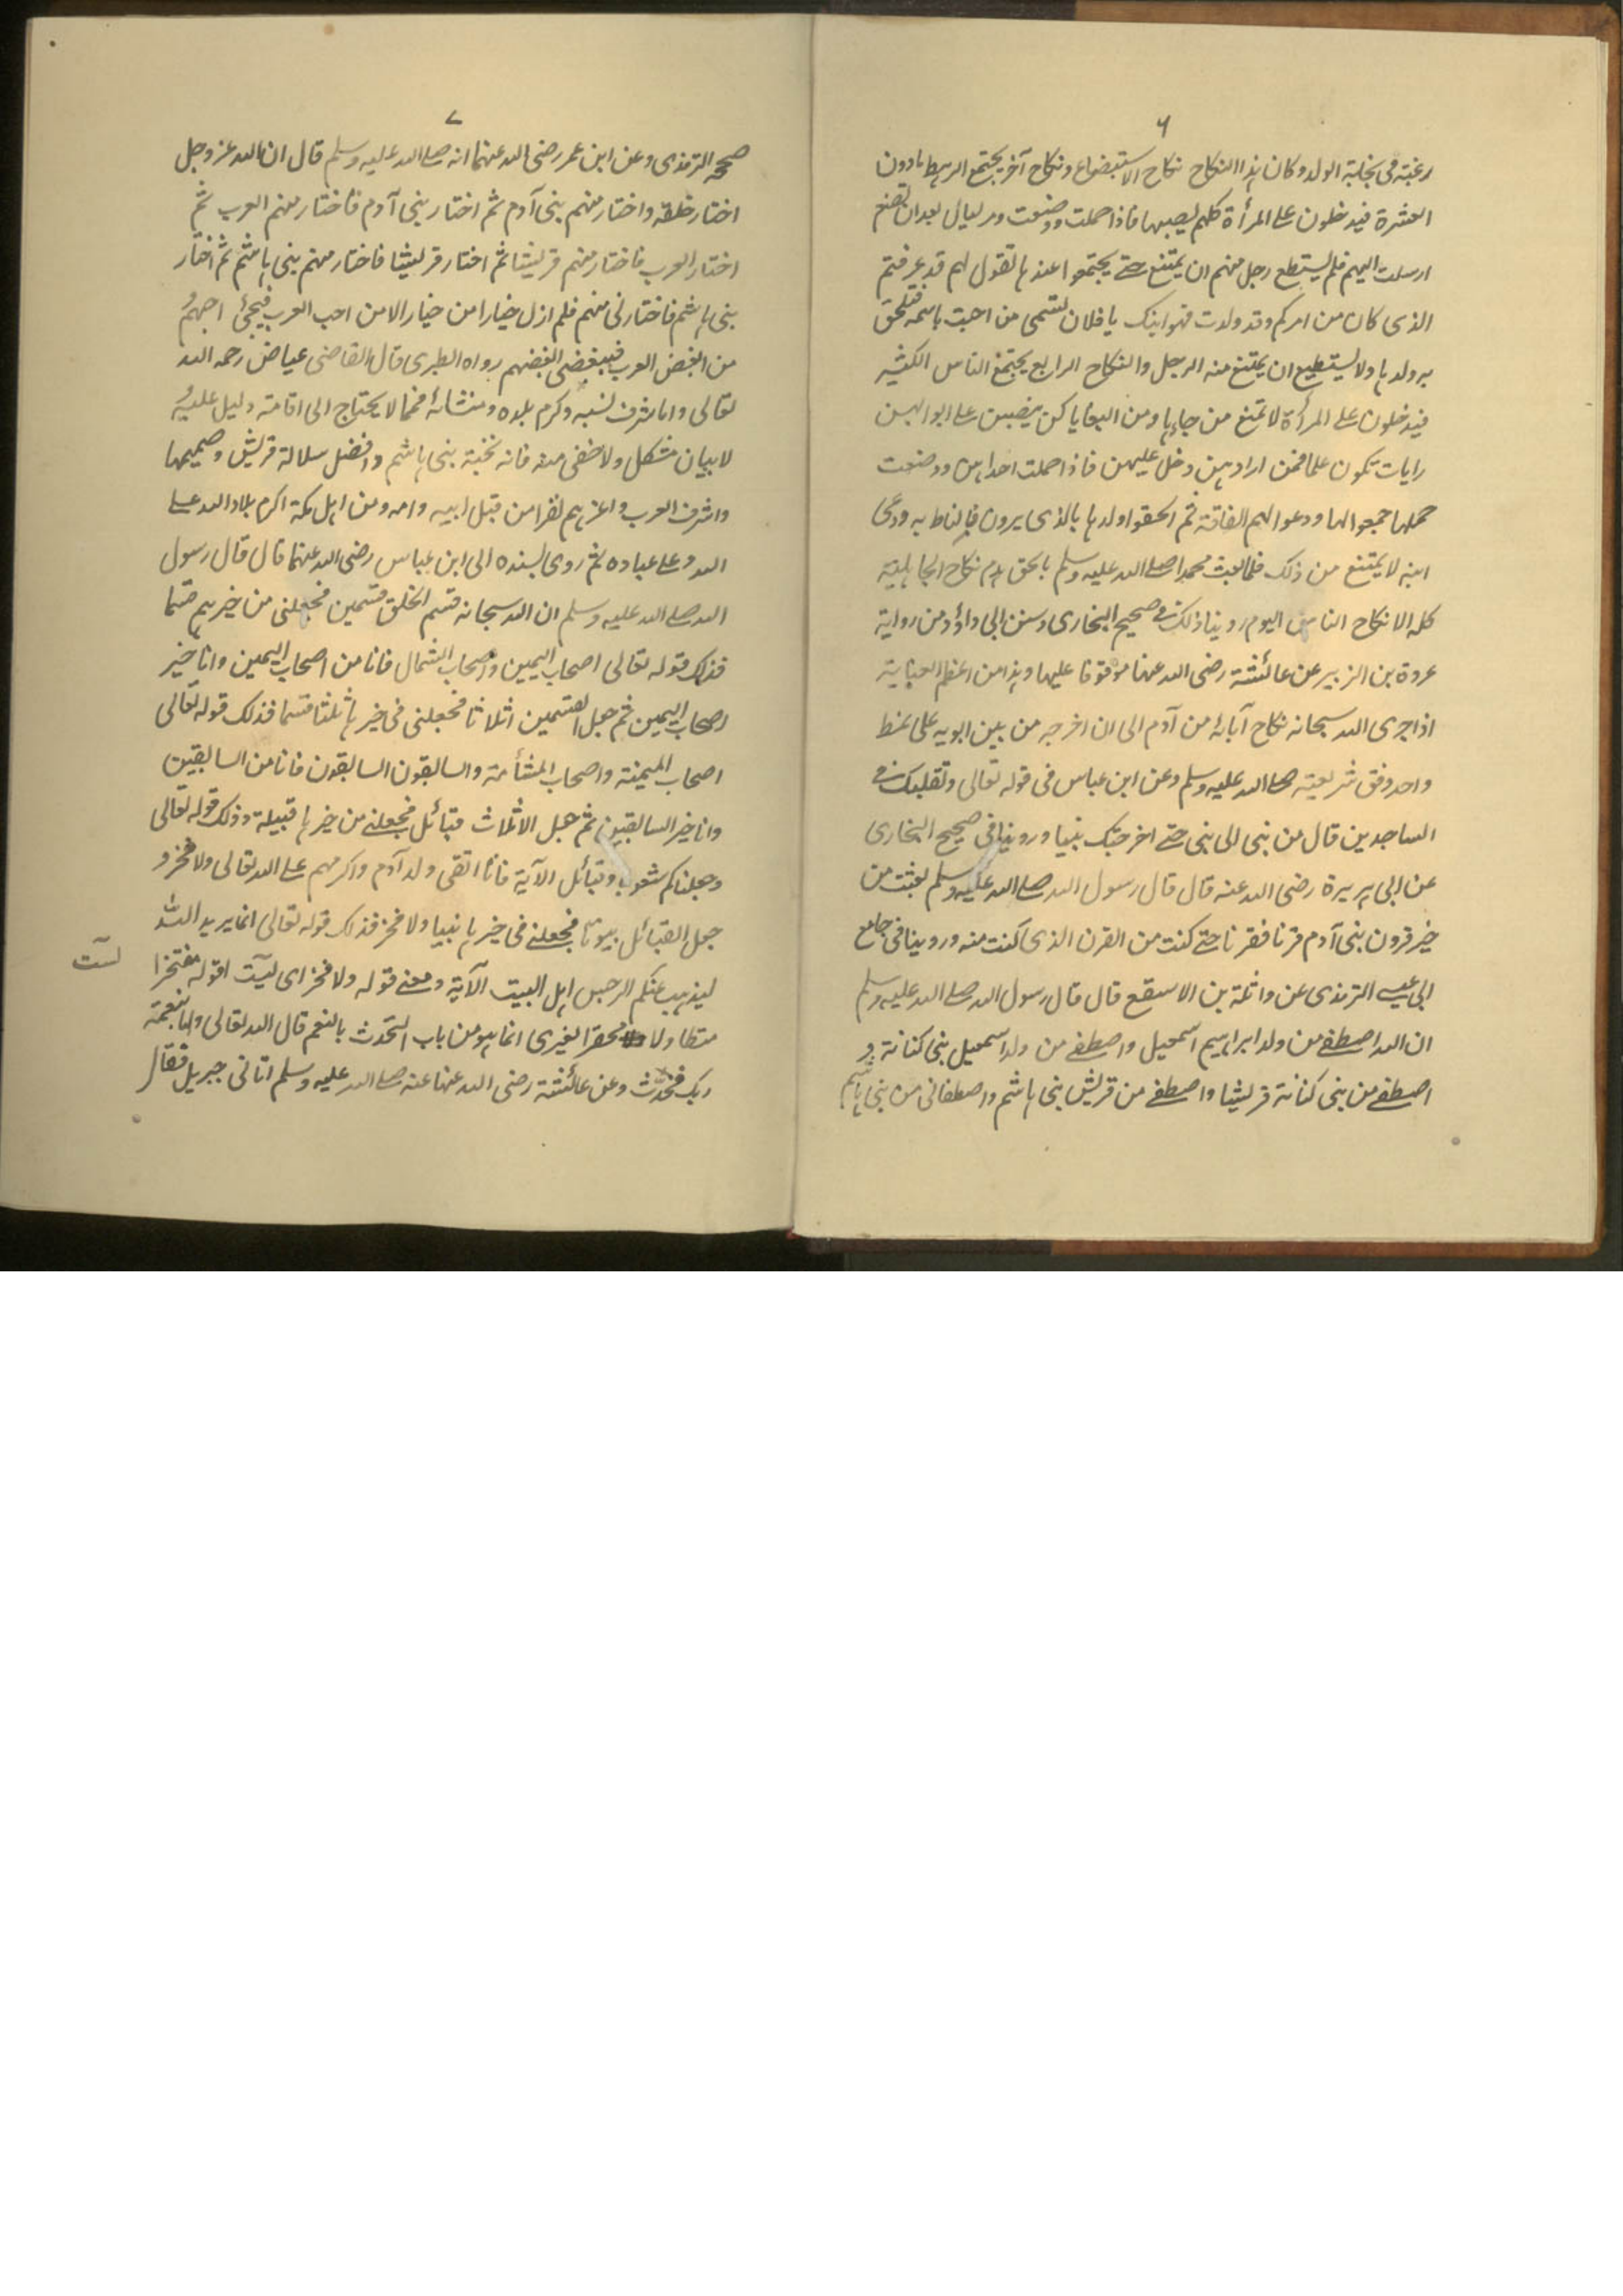 ٦
رغبة فى نجابة الولد وكان هذا النكاح نكاح الاستبضاع ونكاح آخر يجتمع الرهط مادون
العشرة فيدخلون على المرأة كلهم يصيبها فاذا حملت ووضعت ومر ليال بعد ان تضع
ارسلت اليهم فلم يستطع رجل منهم ان يمتنع حتى يجتمعوا عندها تقول لهم قد عرفتم
الذى كان من امركم وقد ولدت فهو ابنك يا فلان تسمى من احبت باسمه فيلحق
به ولدها ولا يستطيع ان يمتنع منه الرجل والنكاح الرابع يجتمع الناس الكثير
فيدخلون على المرأة لا تمنع من جاءها ومن البغايا كن ينصبن على ابوابهن
رايات تكون علما فمن ارادهن دخل عليهن فاذا حملت احداهن ووضعت
حملها جمعوا لها ودعوا لهم القافة ثم الحقوا ولدها بالذى يرون فالتاط به ودعى
ابنه لا يمتنع من ذلك فلما بعث محمد صلى الله عليه وسلم بالحق هدم نكاح الجاهلية
كله الا نكاح الناس اليوم روينا ذلك فى صحيح البخارى وسنن ابى داؤد من رواية
عروة بن الزبير عن عائشة رضى الله عنها موقوفا عليها وهذا من اعظم العناية
اذا جرى الله سبحانه نكاح آبائه من آدم الى ان اخرجه من بين ابويه على نمط
واحد وفق شريعته صلى الله عليه وسلم وعن ابن عباس فى قوله تعالى وتقلبك فى
الساجدين قال من نبى الى نبى حتى اخرجتك نبيا وروينا فى صحيح البخارى
عن ابى هريرة رضى الله عنه قال قال رسول الله صلى الله عليه وسلم بعثت من
خير قرون بنى آدم قرنا فقرنا حتى كنت من القرن الذى كنت منه وروينا فى جامع
ابى عيسى الترمذى عن واثلة بن الاسقع قال قال رسول الله صلى الله عليه وسلم
ان الله اصطفى من ولد ابراهيم اسمعيل واصطفى من ولد اسمعيل بنى كنانة و
اصطفى من بنى كنانة قريشا واصطفى من قريش بنى هاشم واصطفانى من بنى هاشم
٧
صححه الترمذى وعن ابن عمر رضى الله عنهما انه صلى الله عليه وسلم قال ان الله عز وجل
اختار خلقه واختار منهم بنى آدم ثم اختار بنى آدم فاختار منهم العرب ثم
اختار العرب فاختار منهم قريشا ثم اختار قريشا فاختار منهم بنى هاشم ثم اختار
بنى هاشم فاختارنى منهم فلم ازل خيارا من خيار الا من احب العرب فبحبى احبهم و
من ابغض العرب فببغضى ابغضهم رواه الطبرى قال القاضى عياض رحمه الله
تعالى واما شرف نسبه وكرم بلده ومنشائه فمما لا يحتاج الى اقامة دليل عليه و
لا بيان مشكل ولا خفى منه فانه نخبة بنى هاشم وافضل سلالة قريش وصميمها
واشرف العرب واعزهم نفرا من قبل ابيه وامه ومن اهل مكة اكرم بلاد الله على
الله وعلى عباده ثم روى بسنده الى ابن عباس رضى الله عنهما قال قال رسول
الله صلى الله عليه وسلم ان الله سبحانه قسم الخلق قسمين فجعلنى من خيرهم قسما
فذلك قوله تعالى اصحاب اليمين واصحاب الشمال فانا من اصحاب اليمين وانا خير
اصحاب اليمين ثم جعل القسمين اثلاثا فجعلنى فى خيرها ثلثا قسما فذلك قوله تعالى
اصحاب الميمنة واصحاب المشأمة والسابقون السابقون فانا من السابقين
وانا خير السابقين ثم جعل الاثلاث قبائل فجعلنى من خيرها قبيلة وذلك قوله تعالى
وجعلناكم شعوبا وقبائل الآية فانا اتقى ولد آدم واكرمهم على الله تعالى ولا فخر و
جعل القبائل بيوتا فجعلنى فى خيرها نبيا ولا فخر فذلك قوله تعالى انما يريد الله
ليذهب عنكم الرجس اهل البيت الآية ومعنى قوله ولا فخر اى ليست اقوله مفتخرا
لست
متطاولا محقرا لغيرى انما هو من باب التحدث بالنعم قال الله تعالى واما بنعمة
ربك فحدث وعن عائشة رضى الله عنها عنه صلى الله عليه وسلم اتانى جبريل فقال